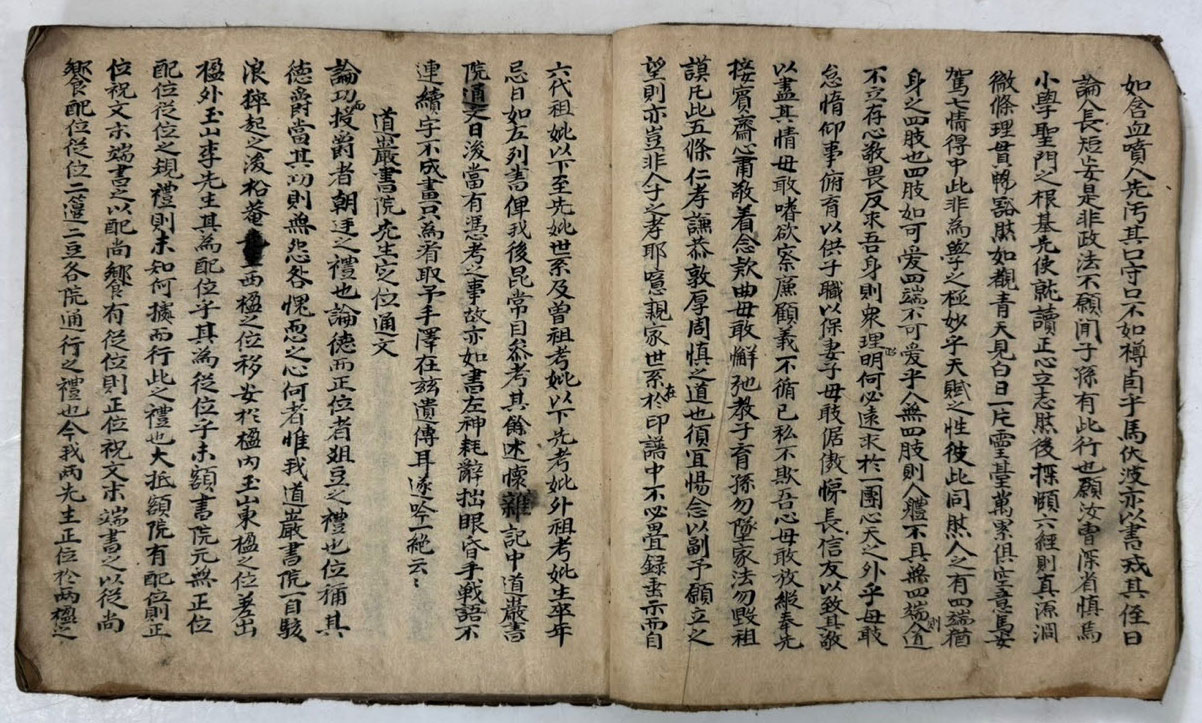 如含血噴人先汚其口守口不如樽自乎馬伏波亦以書戒其侄曰
論人長短妄是非政法不願聞子孫有此行也願汝曹深省愼焉
小學聖門之根基先使就讀正心立志然後探賾六經則眞源澗
微條理貫暢豁然如觀靑天見白日一片靈臺萬累俱空意馬妥
駕七情得中此非爲學之極妙乎天賦之性彼此同然人之有四端猶
身之四肢也四肢如可爱四端不可爱乎人無四肢則人軆不具無四端則人道
不立存心敬畏反求吾身則衆理昭明何必遠求於一團心天之外乎毋敢
怠惰仰事俯育以供子職以保妻子毋敢倨傲悌長信友以致其敬
以盡其情毋敢嗜欲察廉顧義不循己私不欺吾心毋敢放縱奉先
接賓齋心肅敬着念款曲毋敢懈弛敎子育孫勿墜家法勿毁祖
謨凡此五條仁孝謙恭敦厚周愼之道也須宜惕念以副予願立之
望則亦豈非人子之孝耶噫親家世系在於印譜中不必疊錄書示而自
六代祖妣以下至先妣世系及曾祖考妣以下先考妣外祖考妣生卒年
忌日如左列書俾我後昆常目叅考其餘述懷雜記中道巖書
院通文日後當有憑考之事故亦如書左神耗辭拙眼昏手戰語不
連續字不成畫只爲看取予手澤在玆遺傳耳遂吟一絶云云
道巖書院先生定位通文
論功而授爵者朝廷之禮也論德而正位者俎豆之禮也位稱其
德爵當其功則無怨咎愧恧之心何者惟我道巖書院一自駭
浪猝起之後栢菴西楹之位移安於楹內玉山東楹之位差出
楹外玉山李先生其爲配位乎其爲從位乎未額書院元無正位
配位從位之規禮則未知何據而行此之禮也大抵額院有配位則正
位祝文末端書之以配尙饗有從位則正位祝文末端書之以從尙
饗配位從位二籩二豆各院通行之禮也今我兩先生正位於兩楹之